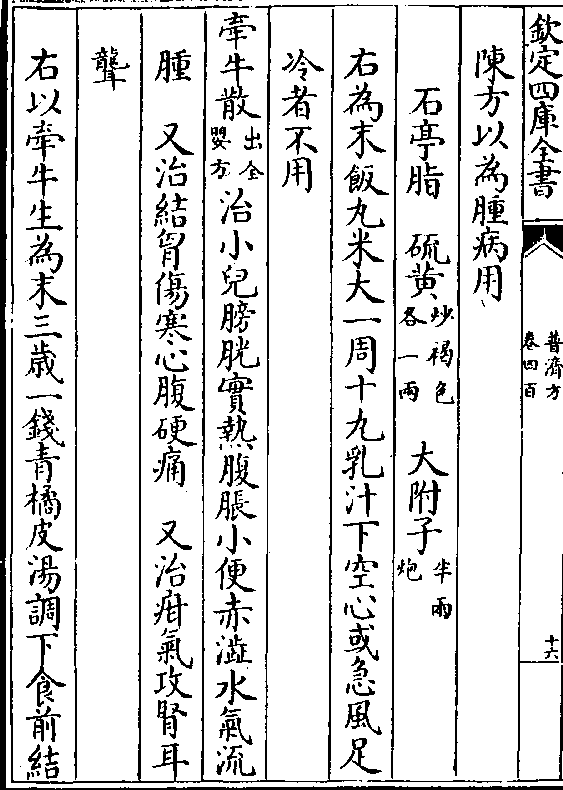 欽定四庫全書
普濟方
卷四百
十六
陳方以為腫病用
石亭脂 硫黄炒褐色各一兩 大附子半兩炮
右為末飯丸米大一周十丸乳汁下空心或急風足
冷者不用
牽牛散出全嬰方 治小兒膀胱實熱腹脹小便赤澁水氣流
腫 又治結胷傷寒心腹硬痛 又治疳氣攻腎耳
聾
右以牽牛生為末三歲一錢青橘皮湯調下食前結